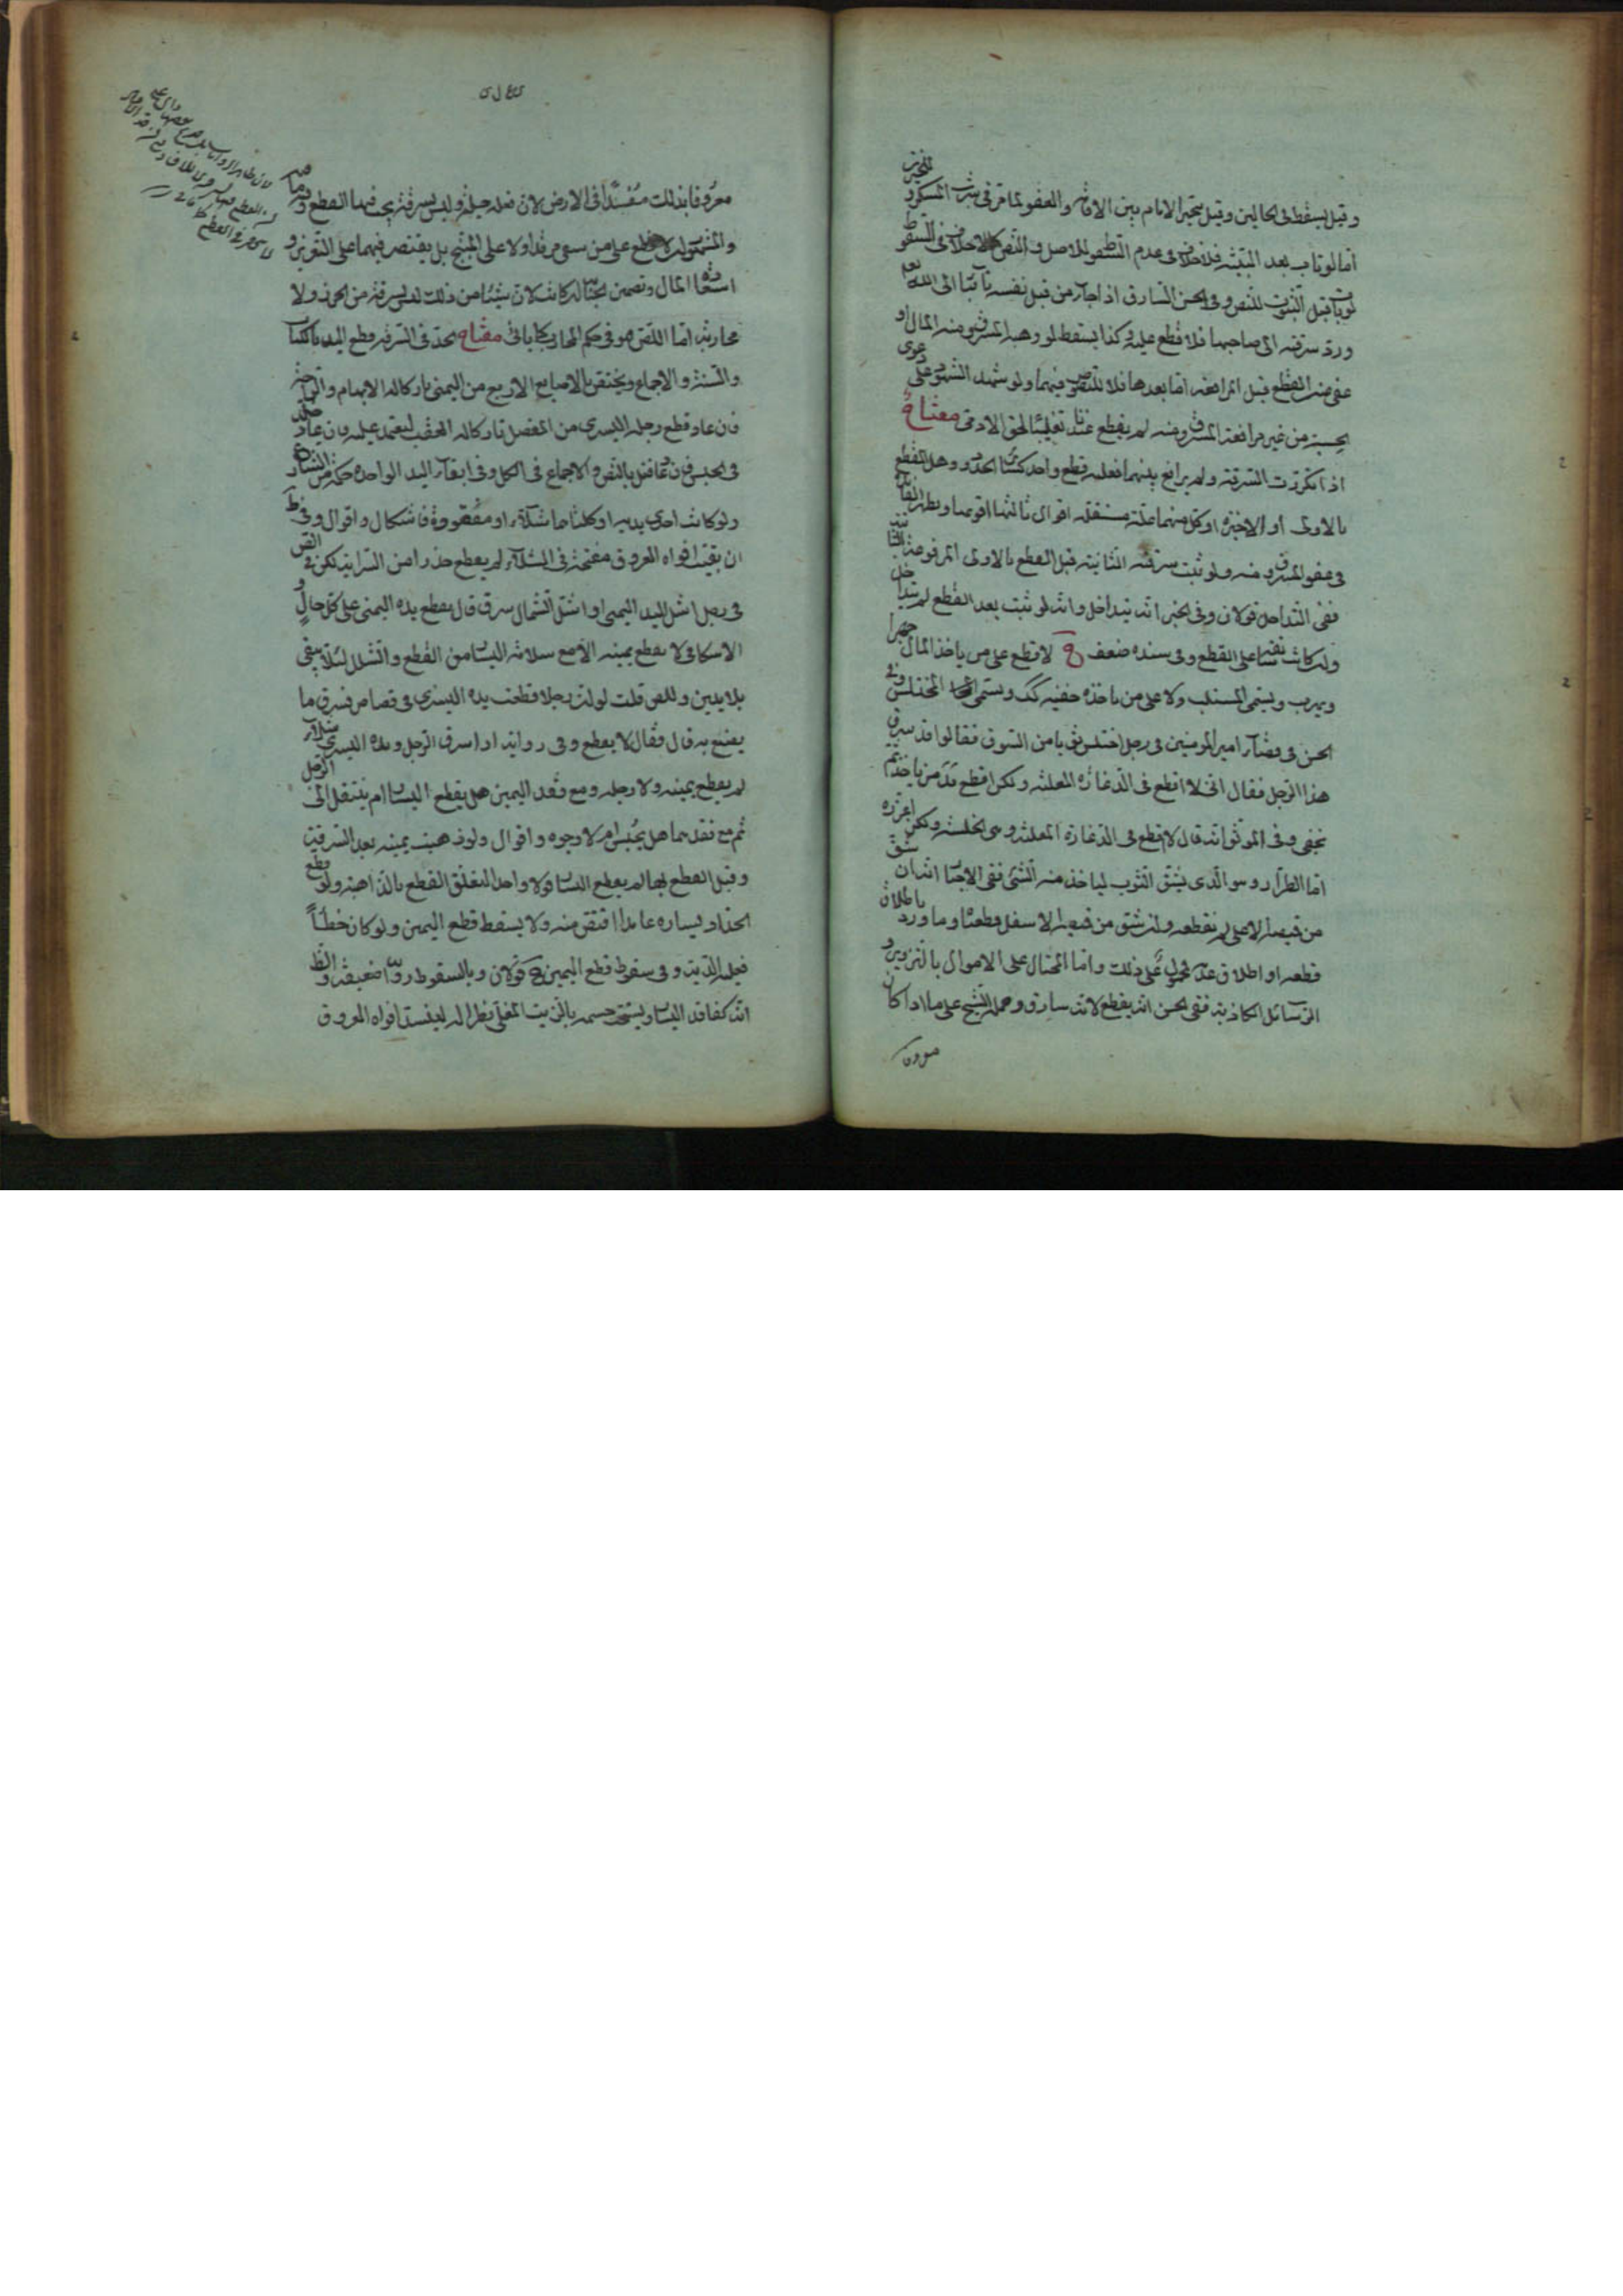 وقيل يسقط في الحالين وقيل يتخير الامام بين الاقامة والعفو لما مر في شرب المسكر
اما لو تاب بعد البينة فلا خلاف في عدم السقوط للاصل والنص كما لا خلاف في السقوط
لو تاب قبل الثبوت للنص وفي الحسن السارق اذا جاء من قبل نفسه تائبا الى الله
ورد سرقته الى صاحبها فلا قطع عليه وكذا يسقط لو وهبه المسروق منه المال او
عفى عن القطع قبل المرافعة اما بعدها فلا للنصوص فيهما ولو شهد الشهود على
حسبة من غير مرافعة المسروق منه لم يقطع عندنا تغليبا لحق الادمى مفتاح
اذا تكررت السرقة ولم يرافع بينهما فعليه قطع واحد كسائر الحدود وهل القطع
بالاولى او الاخيرة او كل منهما علة مستقلة اقوال ثالثها اقويها ويظهر الفائدة
في عفو المسروق منه ولو ثبت سرقته الثانية قبل القطع بالاولى المرفوعة
ففي التداخل قولان وفي الخبر انه يتداخل وانه لو ثبت بعد القطع لم يتداخل
ولو كانت على القطع وفي سنده ضعف لا قطع على من ياخذ المال جهرا
ويهرب ويسمى المستلب ولا على من ياخذه خفية كك ويسمى المختلس وفي
الحسن في قضاء امير المومنين في رجل اختلس ثوبا من السوق فقالوا قد سرق
هذا الرجل فقال اني لا اقطع في الدغارة المعلنة ولكن اقطع يد من ياخذ ثم
يخفى وفي الموثق انه قال لا قطع في الدغارة المعلنة وهى الخلسة ولكن اعزره
اما الطرار وهو الذي يشق الثوب لياخذ منه الشئ ففي الاخبار انه ان شق
من قميصه الاعلى لم نقطعه وان شق من قميصه الاسفل قطعناه وما ورد باطلاق
قطعه او اطلاق عدمه محمول على ذلك واما المحتال على الاموال بالتزوير و
الرسائل الكاذبة ففي الحسن انه يقطع لانه سارق وحمله الشيخ على ما اذا كان
معروفا بذلك مفسدا في الارض لان فعله حيلة وليس بسرقة يجب فيها القطع
والمشهور لا قطع على من سقى مرقدا ولا على المبنج بل يقتصر فيهما على التعزير و
استعادة المال وتضمن الجناية لو كانت لان شيئا من ذلك ليس سرقة من الحرز ولا
محاربة اما اللص هو في حكم المحارب كما ياتي مفتاح يحد في السرقة قطع اليد بالكتاب
والسنة والاجماع ويختص بالاصابع الاربع من اليمنى تاركا له الابهام والراحة
فان عاد قطع رجله اليسرى من المفصل تاركا له العقب ليعتمد عليه وان عاد خلد
في الحبس بالنص والاجماع في الكل وفي ابقاء اليد الواحدة حكمة من الشارع
ولو كانت احدى يديه او كلتاهما شلاء او مفقودة فاشكال واقوال وفي ط
ان بقيت افواه العروق مفتحة في الشلاء لم يقطع حذرا من السراية لكن في الصحيح
في رجل اشل اليد اليمنى او اشل الشمال سرق قال يقطع يده اليمنى على كل حال و
الاسكافي لا يقطع يمينه الا مع سلامة اليسار من القطع والشلل لئلا يبقى
بلا يدين وللصحيح قلت لو ان رجلا قطعت يده اليسرى في قصاص فسرق ما
يصنع به قال فقال لا يقطع وفي رواية اذا سرق الرجل ويده اليسرى شلاء
لم يقطع يمينه ولا رجله ومع فقد اليمين هل يقطع اليسار ام ينتقل الى الرجل
ثم مع فقدهما هل يحبس ام لا وجوه واقوال ولو ذهبت يمينه بعد السرقة
وقبل القطع بها لم يقطع اليسار قولا واحدا لتعلق القطع بالذاهبة ولو قطع
الحداد يساره عامدا اقتص منه ولا يسقط قطع اليمين ولو كان خطأ
فعليه الدية وفي سقوط قطع اليمين ح قولان وبالسقوط رواية ضعيفة والظ
انه كفاقد اليسار ويستحب حسمه بالزيت المغلي نظرا له لينسد افواه العروق